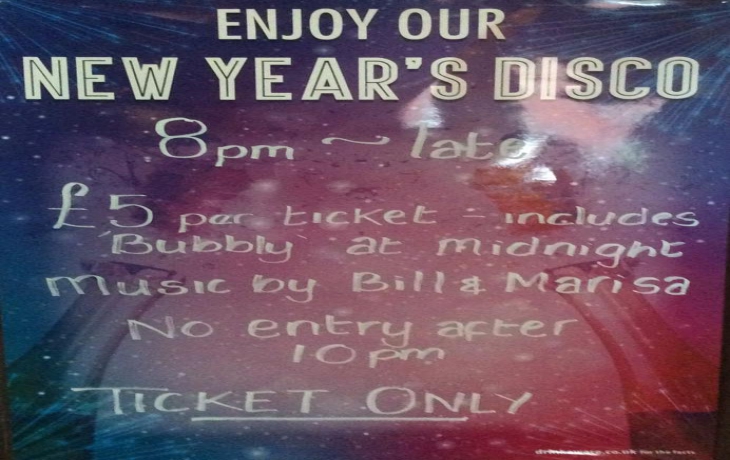 ENJOY OUR
NEW YEAR'S DISCO
8pm ~ late
£5 per ticket - includes
'Bubbly' at midnight
Music by Bill & Marisa
No entry after
10pm
TICKET ONLY
drinkaware.co.uk for the facts